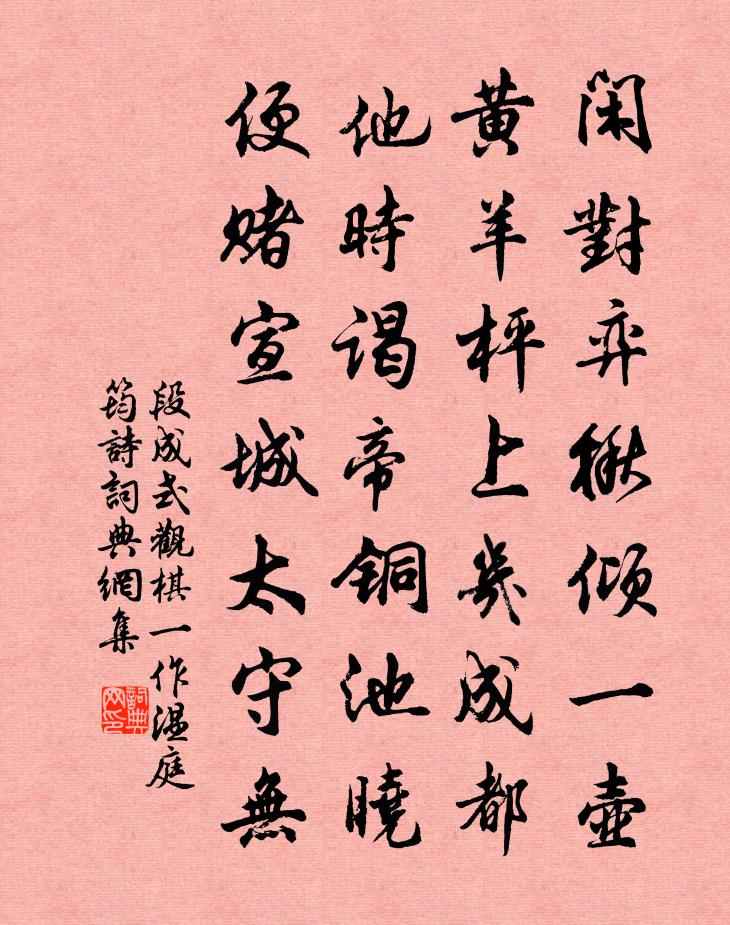 閑對弈楸傾一壺
黃羊枰上幾成都
他時謁帝銅池曉
便賭宣城太守無
段成式觀棋一作溫庭
筠詩詞典網集
詞典網印